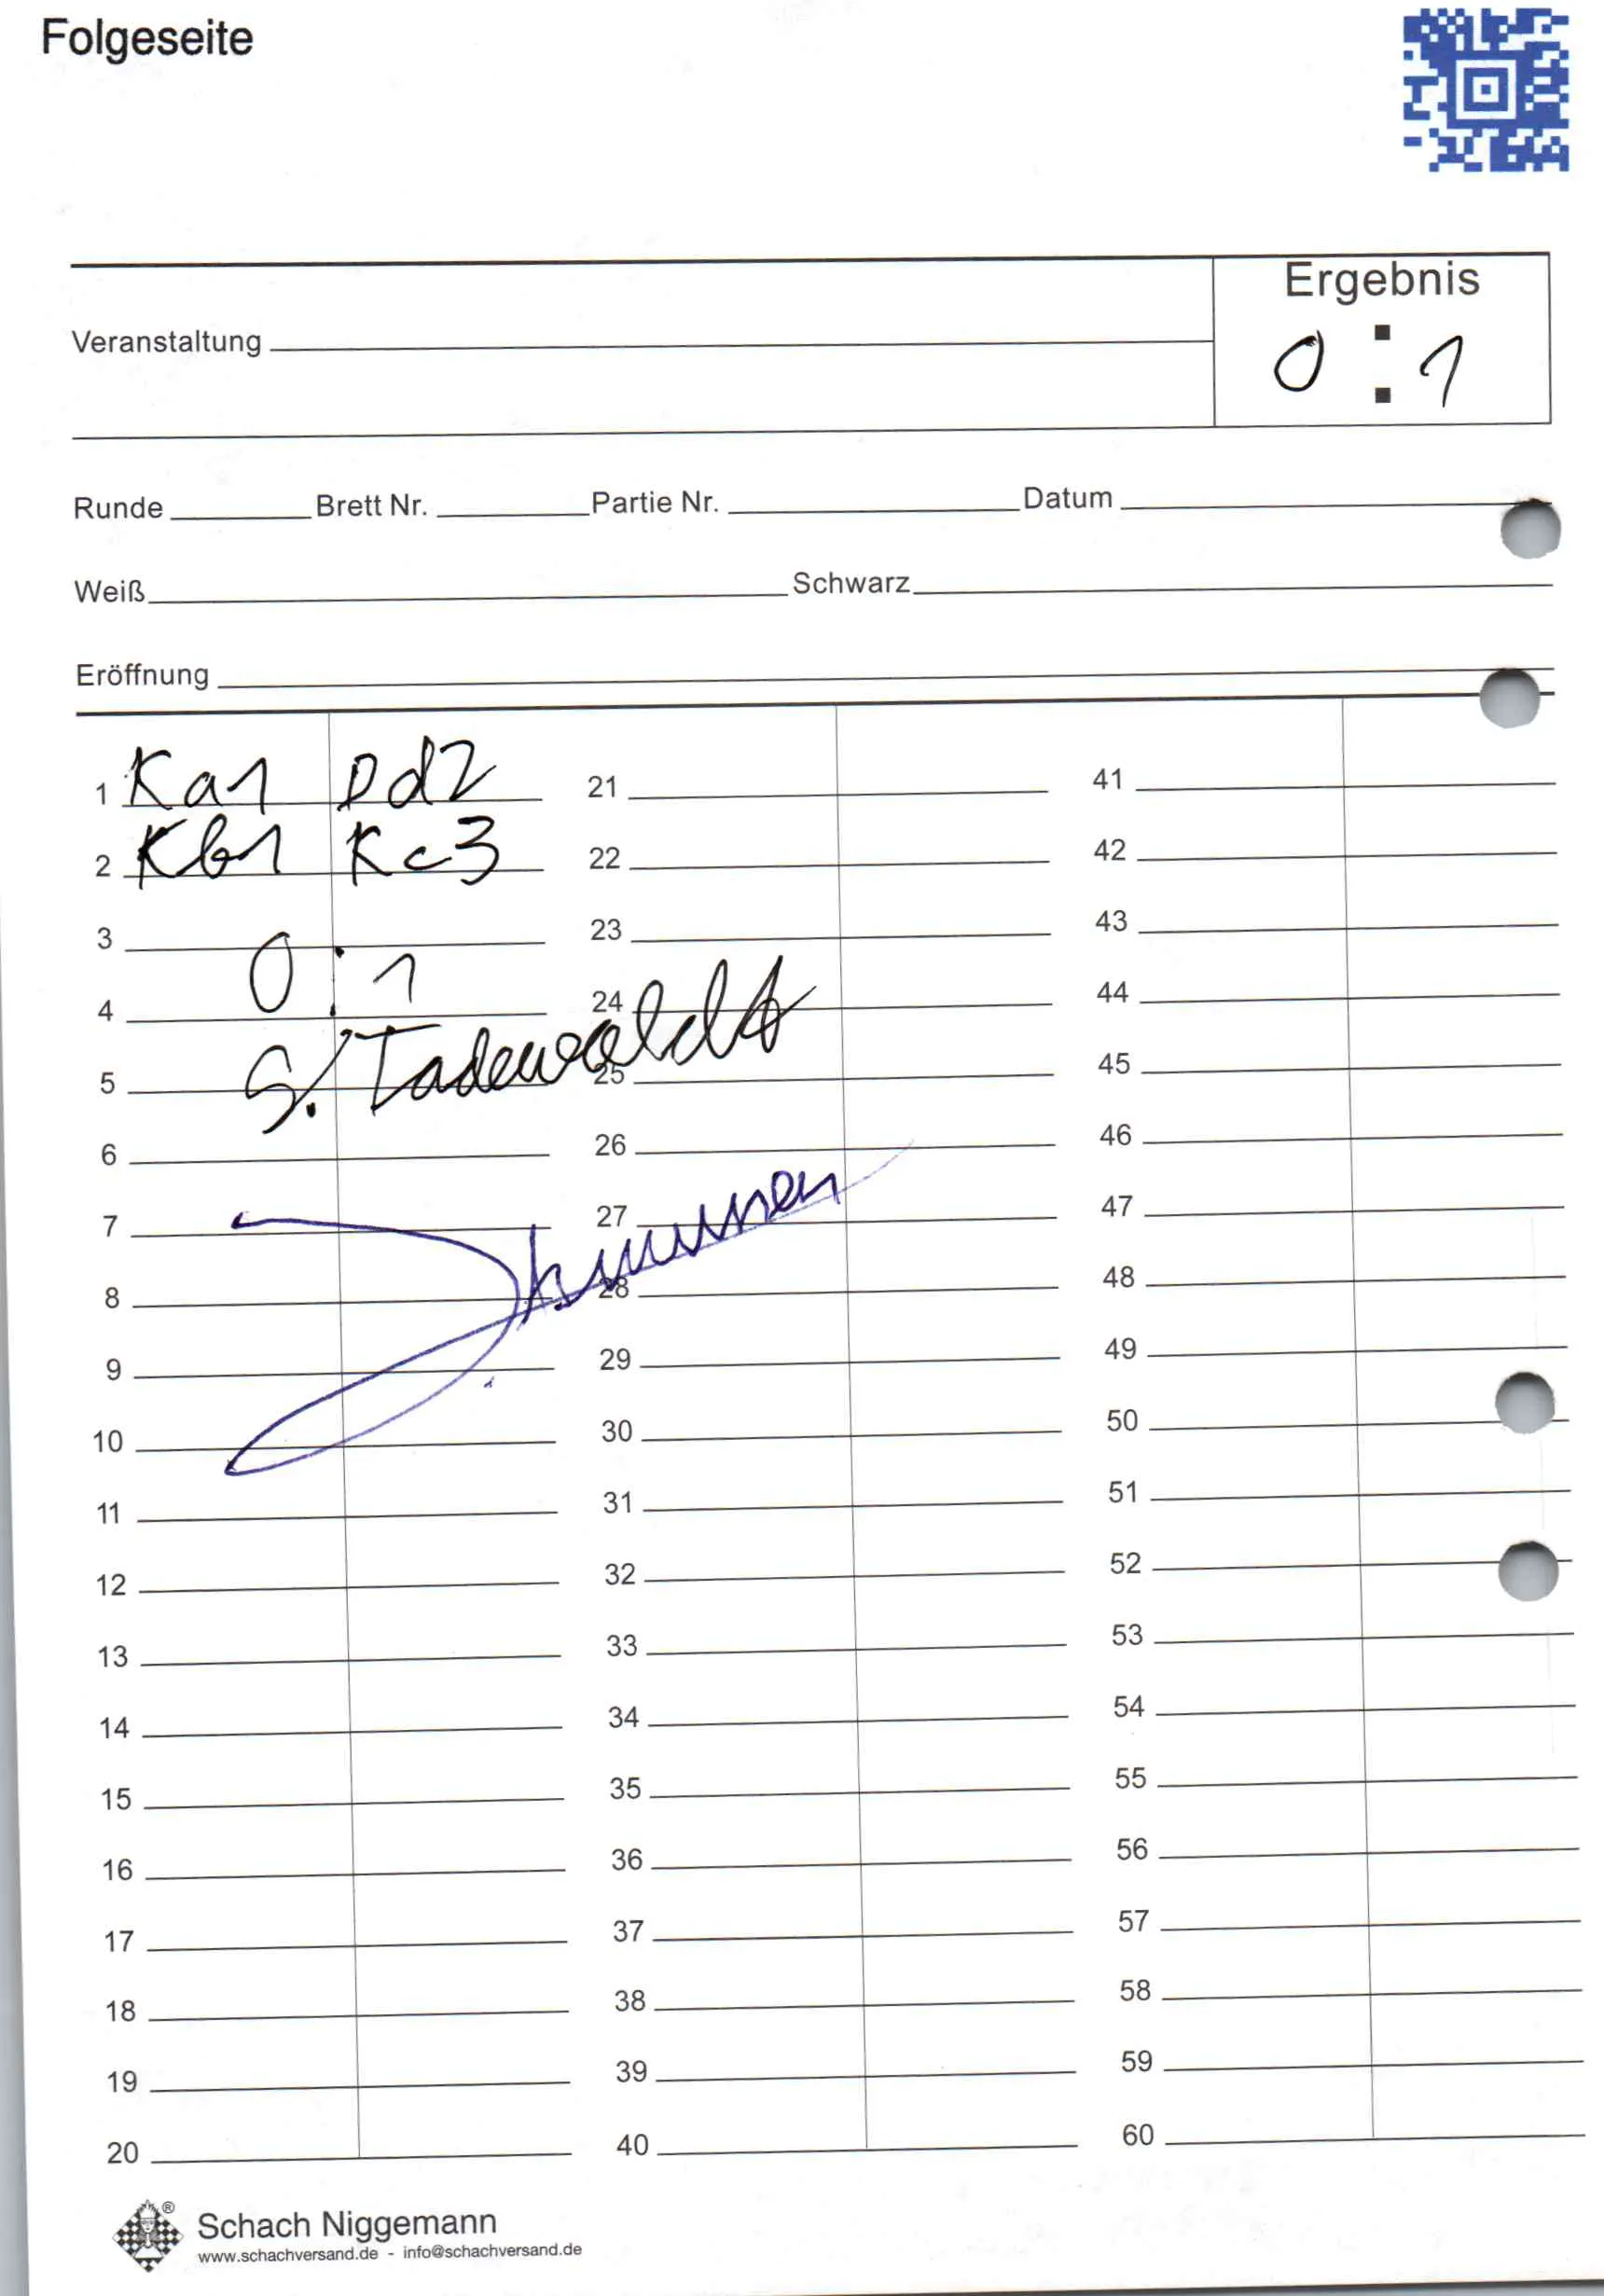 Folgeseite
Ergebnis
Veranstaltung
0 : 1
Runde Brett Nr. Partie Nr. Datum
Weiß Schwarz
Eröffnung
1 Ka1 Dd2 21 41
2 Kb1 Kc3 22 42
3 23 43
0 : 1
4 24 44
S.
5 25 45
6 26 46
7 27 47
8 28 48
9 29 49
10 30 50
11 31 51
12 32 52
13 33 53
14 34 54
15 35 55
16 36 56
17 37 57
18 38 58
19 39 59
20 40 60
®
Schach Niggemann
www.schachversand.de - info@schachversand.de